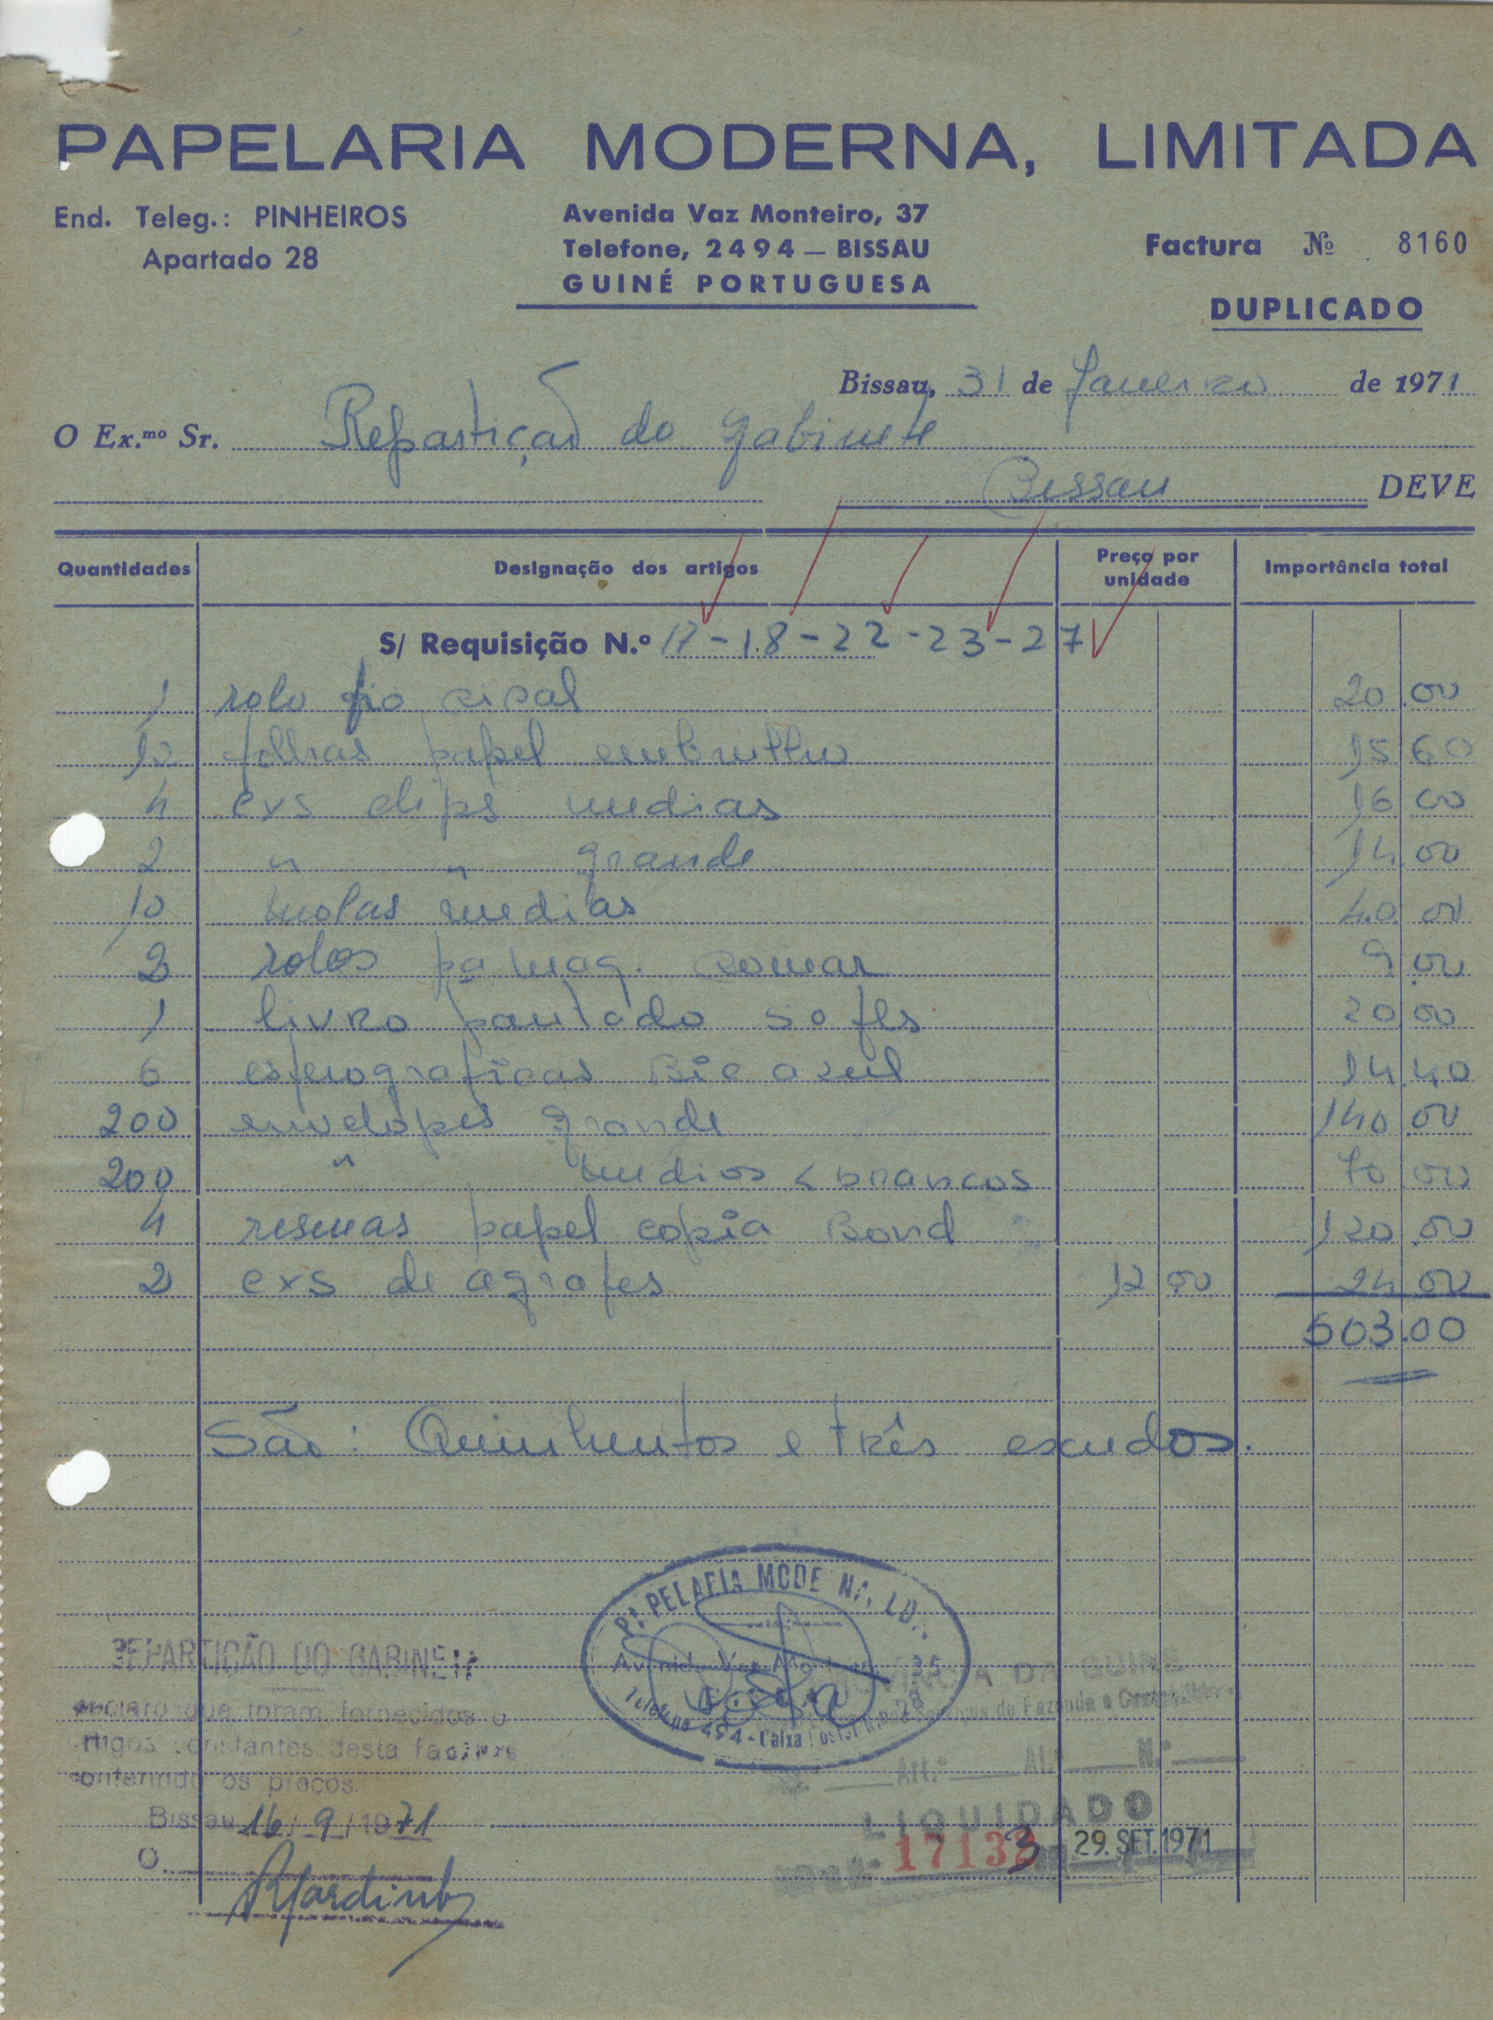 PAPELARIA MODERNA, LIMITADA
End. Teleg.: PINHEIROS
Apartado 28
Avenida Vaz Monteiro, 37
Telefone, 2494 — BISSAU
GUINÉ PORTUGUESA
Factura Nº 8160
DUPLICADO
Bissau, 31 de Janeiro de 1971
O Ex.mo Sr. Repartição do Gabinete
Bissau DEVE
Quantidades Designação dos artigos Preço por unidade Importância total
S/ Requisição N.º 17-18-22-23-27
1 rolo fio cisal 20.00
10 folhas papel embrulho 15 60
4 cxs clips medias 16 00
2 " " grande 14.00
10 molas medias 40 00
3 rolos pa maq. somar 9.00
1 livro pautado 50 fls 20 00
6 esferograficas Bic azul 14.40
200 envelopes grande 140.00
200 " medios < brancos 70.00
4 resmas papel copia Bond 120.00
2 cxs de agrafes 12 00 24 00
503.00
São: Quinhentos e três escudos.
PAPELARIA MODE NA, LD.
Avenida Vaz Monteiro, 35
Telefone 494 - Caixa Postal 28
REPARTIÇÃO DO GABINETE
que foram fornecidos o
rtigos constantes desta factura
conferindo os preços.
Bissau 16/9/1971
O
DA GUINÉ
Serviços de Fazenda e
Art.º Al. N.º
LIQUIDADO
17133 29. SET. 1971